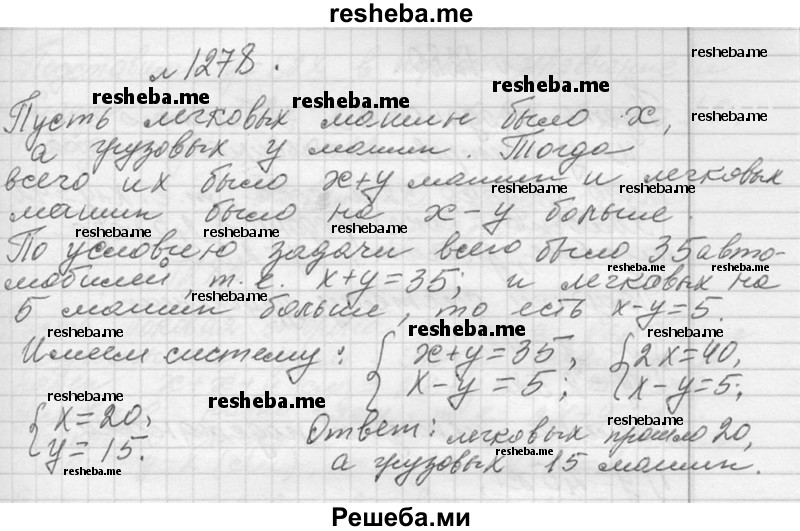 resheba.me
resheba.me
№ 1278.
resheba.me resheba.me resheba.me
Пусть легковых машин было x,
а грузовых y машин. Тогда
всего их было x+y машин и легковых
resheba.me resheba.me
машин было на x-y больше.
resheba.me resheba.me resheba.me
По условию задачи всего было 35 авто-
resheba.me resheba.me
мобилей, т. е. x+y=35; и легковых на
resheba.me
5 машин больше, то есть x-y=5.
resheba.me resheba.me resheba.me
Имеем систему: { x+y=35, { 2x=40,
x-y=5; x-y=5;
resheba.me resheba.me
{ x=20,
y=15.
resheba.me
Ответ: легковых прошло 20,
resheba.me
а грузовых 15 машин.
resheba.me resheba.me
Решеба.ми